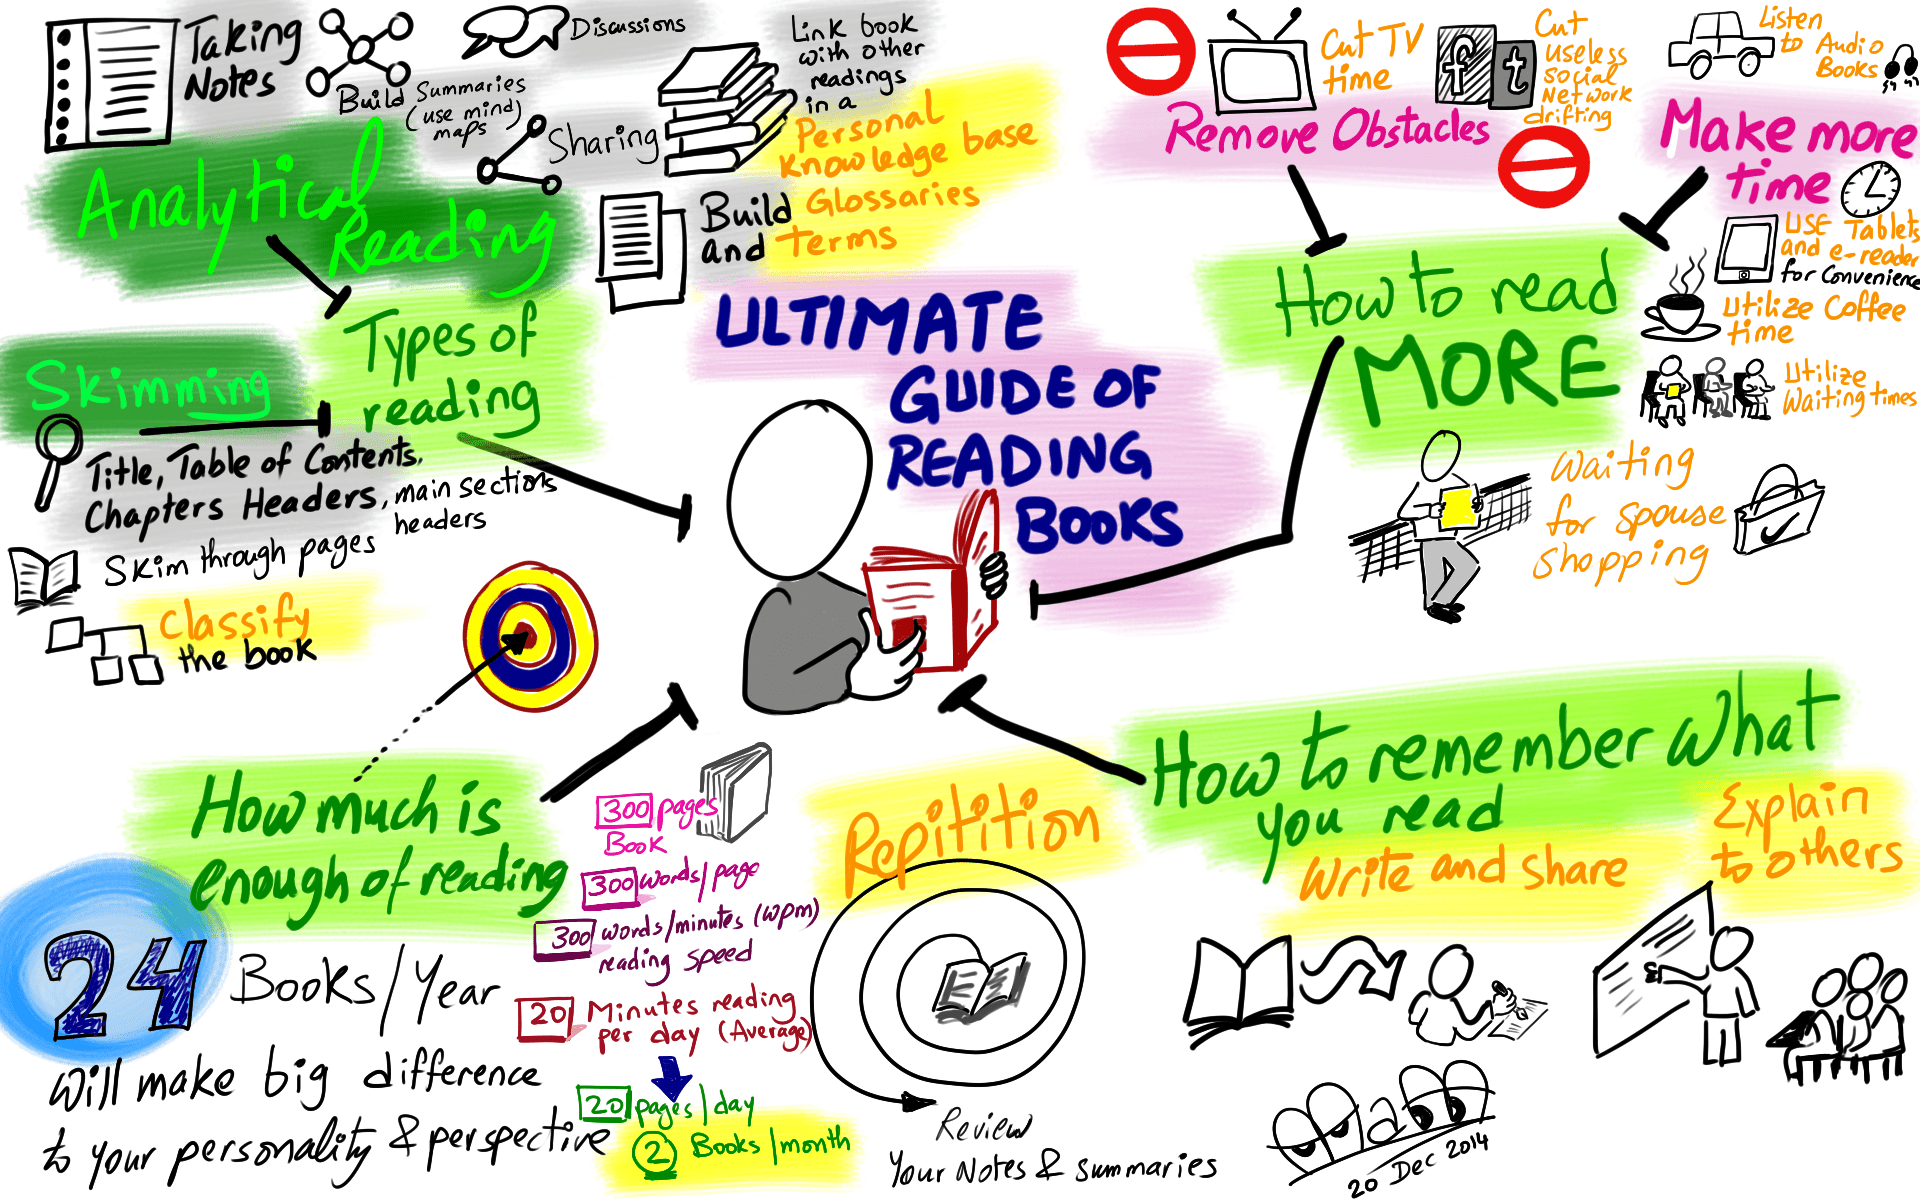 ULTIMATE
GUIDE OF
READING
BOOKS
Types of
reading
Analytical
Reading
Taking
Notes
Build Summaries
(use mind)
maps
Discussions
Sharing
Link book
with other
readings
in a
Personal
Knowledge base
Build Glossaries
and Terms
Skimming
Title, Table of Contents,
Chapters Headers, main sections
headers
Skim through pages
Classify
the book
How to read
MORE
Remove Obstacles
Cut TV
time
Cut
useless
social
Network
drifting
f t
Make more
time
Listen
to Audio
Books
USE Tablets
and e-reader
for Convenience
Utilize Coffee
time
Utilize
Waiting times
Waiting
for spouse
shopping
How much is
enough of reading
24 Books/Year
will make big difference
to your personality & perspective
300 pages
Book
300 words/page
300 words/minutes (wpm)
reading speed
20 Minutes reading
per day (Average)
20 pages/day
2 Books/month
How to remember what
you read
Repitition
Review
Your Notes & summaries
Write and share
Explain
to others
20 Dec 2014